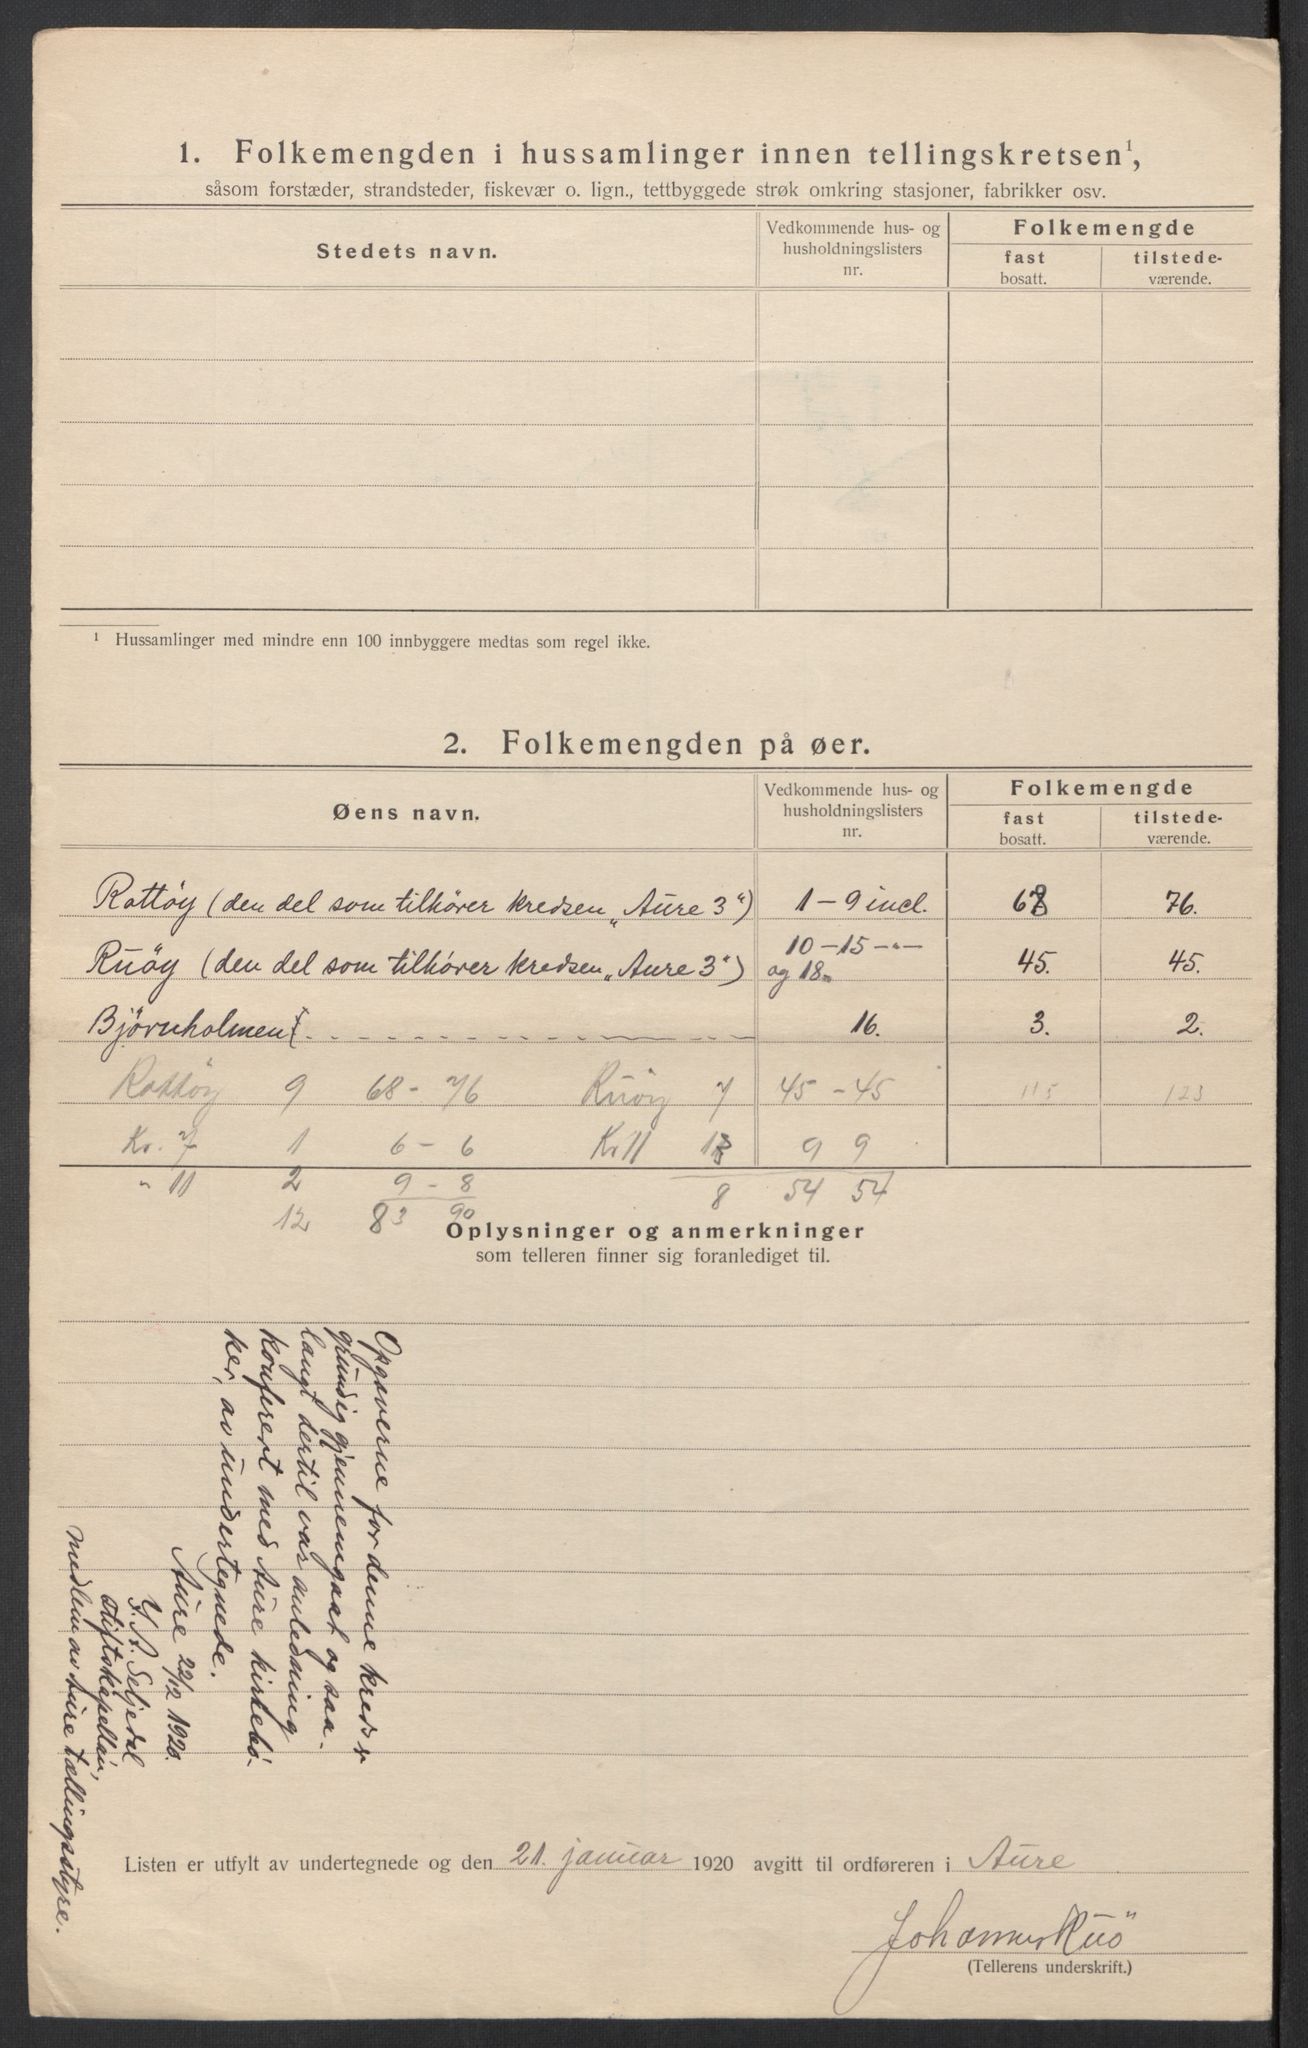 1. Folkemengden i hussamlinger innen tellingskretsen¹,
såsom forstæder, strandsteder, fiskevær o. lign., tettbyggede strøk omkring stasjoner, fabrikker osv.
Stedets navn.
Vedkommende hus- og husholdningslisters nr.
Folkemengde
fast bosatt.
tilstedeværende.
¹ Hussamlinger med mindre enn 100 innbyggere medtas som regel ikke.
2. Folkemengden på øer.
Øens navn.
Vedkommende hus- og husholdningslisters nr.
Folkemengde
fast bosatt.
tilstede-værende.
Rottöy (den del som tilhører kredsen „Aure 3") 1 – 9 incl. 68 76.
Ruöy (den del som tilhører kredsen „Aure 3") 10 – 15 -"- og 18. 45. 45.
Björnholmen 16. 3. 2.
Rottöy 9 68 - 76 Ruöy 7 45 - 45 115 123
Kr. 7 1 6 - 6 Kr 11 1 9 9
" 11 2 9 - 8 8 54 54
12 83 90
Oplysninger og anmerkninger
som telleren finner sig foranlediget til.
Opgaverne for denne kreds er
grundig gjennemgaat og saa-
langt dertil var anledning
konferert med Aure kirkebö-
ker, av undertegnede.
Aure 22/12 1920.
Y. A. Seljedal
stiftskapellan,
medlem av Aure tællingsstyre.
Listen er utfylt av undertegnede og den 21. januar 1920 avgitt til ordføreren i Aure
Johannes Ruö
(Tellerens underskrift.)